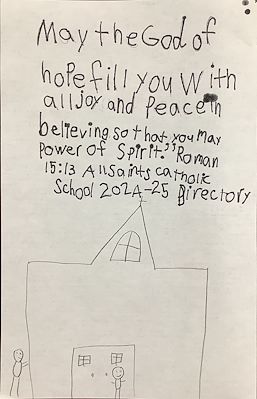 May the God of
hope fill you with
all joy and Peace in
believing so that you may
Power of Spirit." Roman
15:13 All Saints catholic
School 2024-25 Directory